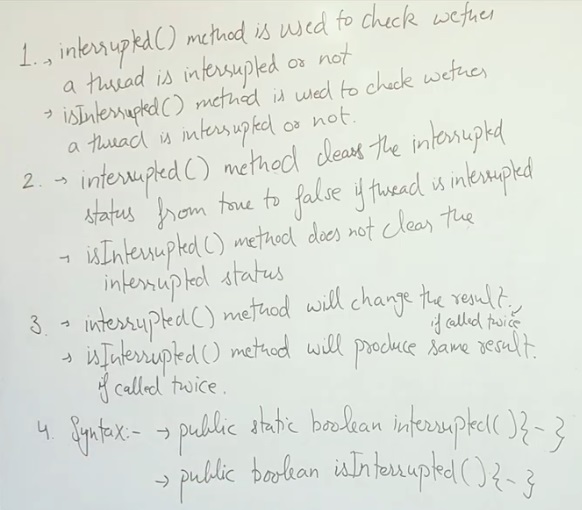 1. → interrupted() method is used to check wether
a thread is interrupted or not
→ isInterrupted() method is used to check wether
a thread is interrupted or not.
2. → interrupted() method clears the interrupted
status from true to false if thread is interrupted
→ isInterrupted() method does not clear the
interrupted status
3. → interrupted() method will change the result.,
if called twice
→ isInterrupted() method will produce same result.
if called twice.
4. Syntax:- → public static boolean interrupted(){-}
→ public boolean isInterrupted(){-}